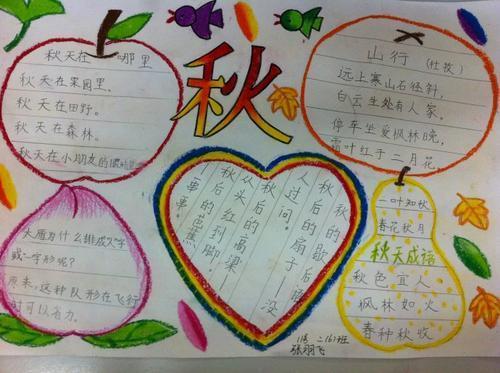 秋天在 哪里
秋天在果园里。
秋天在田野。
秋天在森林。
秋天在小朋友的
秋
山行 (杜牧)
远上寒山石径斜,
白云生处有人家,
停车坐爱枫林晚,
霜叶红于二月花
大雁为什么排成人字
或一字形呢?
原来,这种队形在飞行
时可以省力。
秋的歇后语
秋后的扇子——没
人过问。
秋后的高梁——
从头红到脚。
秋后的芭蕉——
一串串。
一叶知秋
春花秋月
秋天成语
秋色宜人
枫林如火
春种秋收
二(6)班
张翔飞